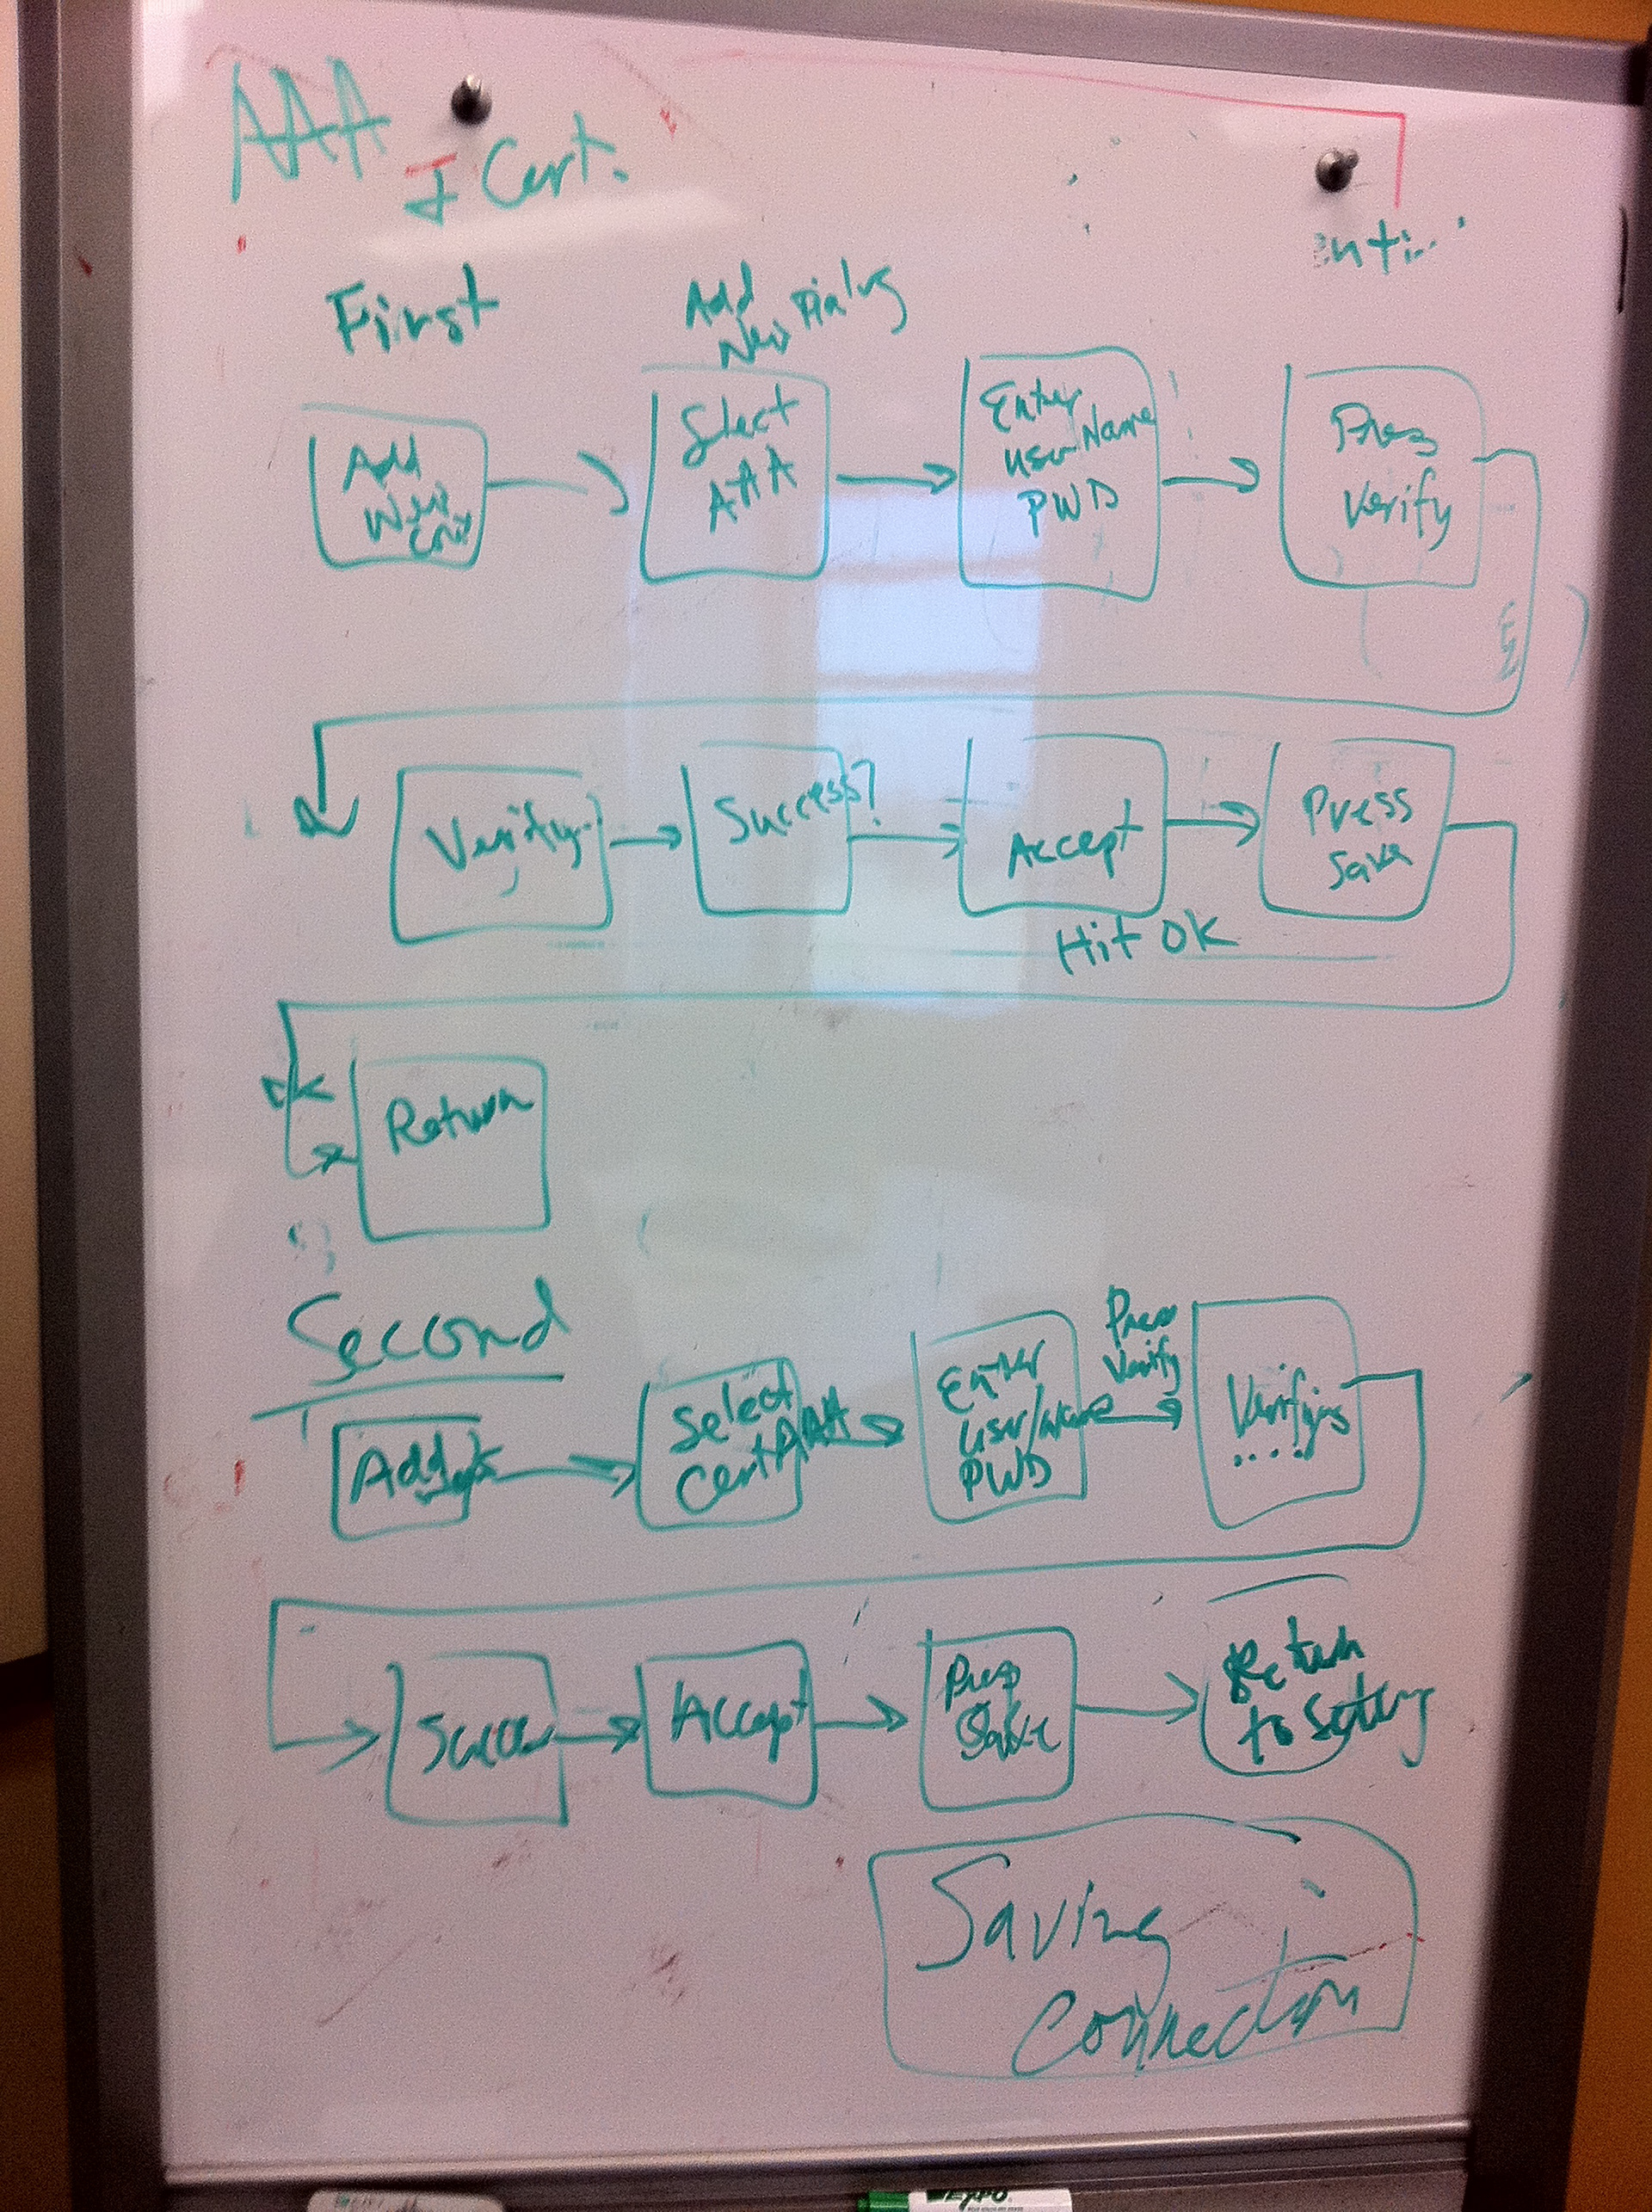 AAA
Cert.
First
Add
New Dialog
Add
New
Select
AAA
Enter
UserName
PWD
Press
Verify
Verify
Success?
Accept
Hit OK
Press
Save
OK
Return
Second
Add
Select
Cert AAA
Enter
User/Name
PWD
Press
Verify
Verifying
....
Success
Accept
Press
Save
Return
to Setting
Saving
Connection
EXPO